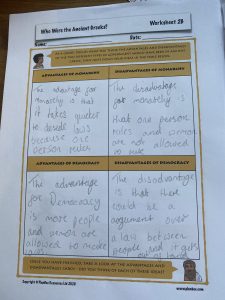 Who Were the Ancient Greeks?
Worksheet 2B
Name:
Date:
ADVANTAGES OF MONARCHY
DISADVANTAGES OF MONARCHY
The advantage for
monarchy is that
it takes quicker
to decide laws
because one
person rules
The disadvantage
for monarchy is
that one person
rules and women
are not allowed
to rule
ADVANTAGES OF DEMOCRACY
DISADVANTAGES OF DEMOCRACY
The advantage
for Democracy
is more people
and women are
allowed to make
The disadvantage
is that there
could be a
argument over
a law between
people and it gets
out of hand